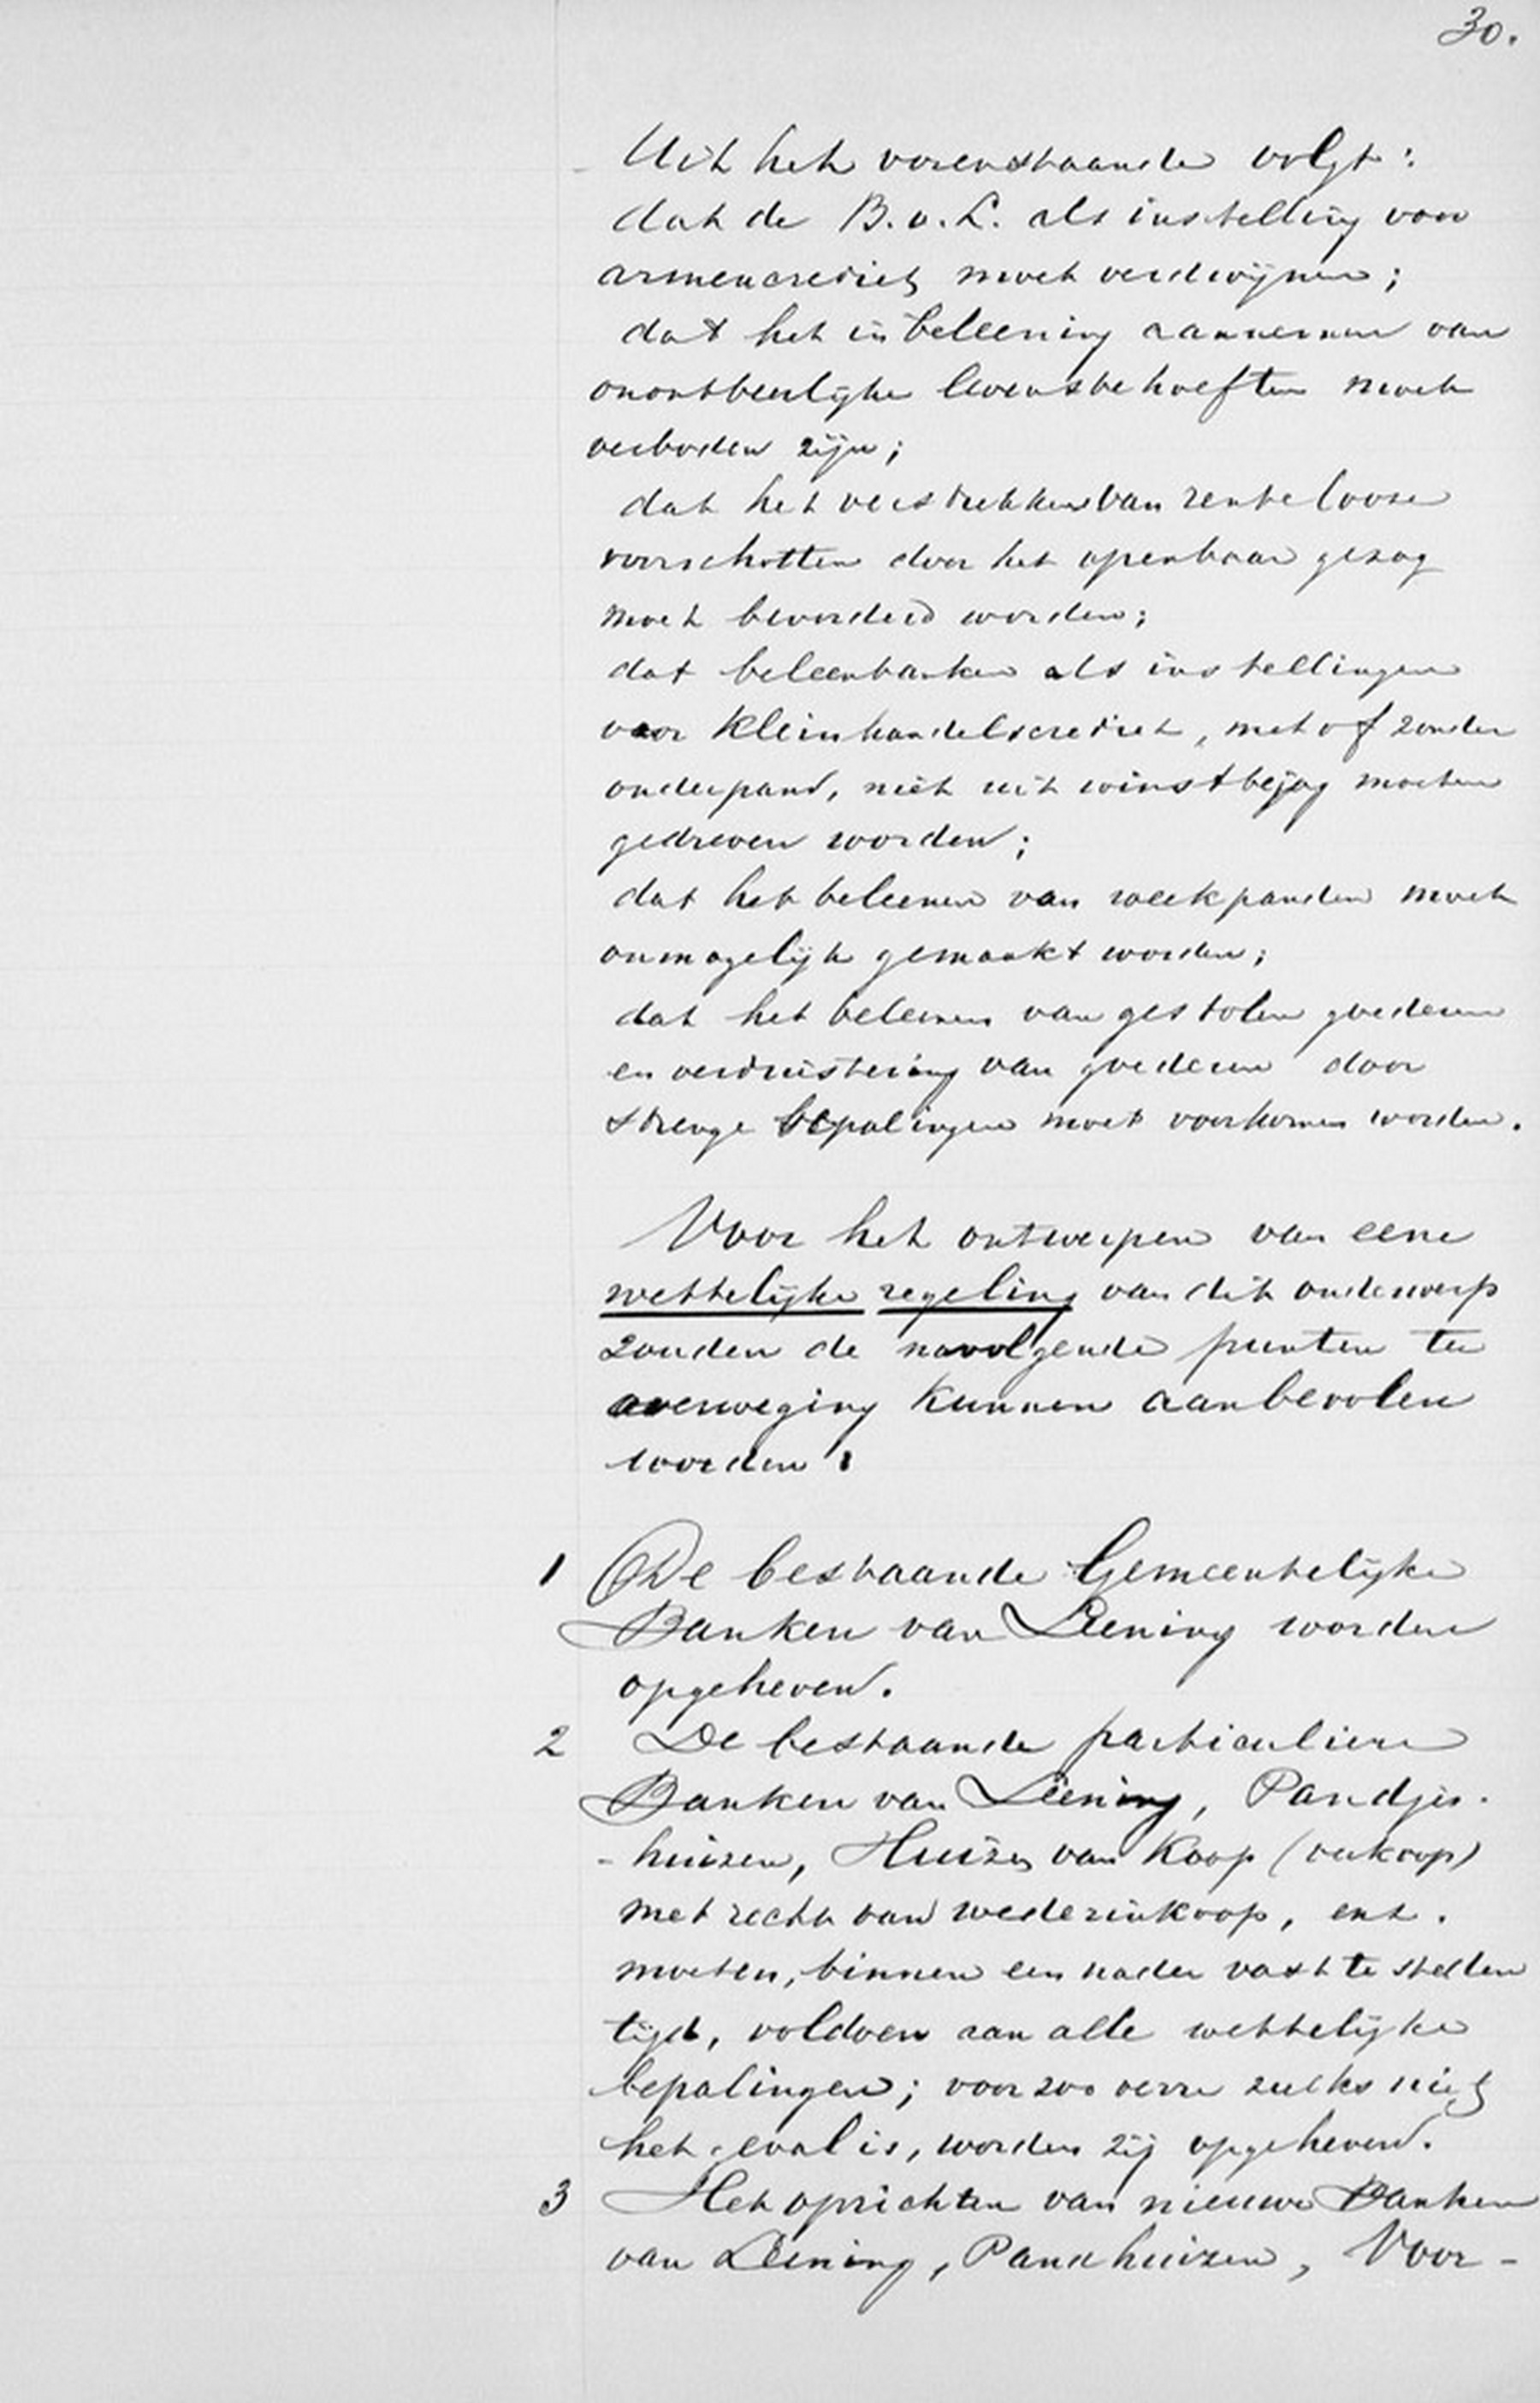 30.
Uit het vorenstaande volgt:
dat de B. v. L. als instelling voor
armencrediet moet verdwijnen;
dat het in beleening aannemen van
onontbeerlijke levensbehoeften moet
verboden zijn;
dat het verstrekken van rentelooze
voorschotten door het openbaar gezag
moet bevorderd worden;
dat beleenbanken als instellingen
voor kleinhandelscrediet, met of zonder
onderpand, niet uit winstbejag moeten
gedreven worden;
dat het beleenen van weekpanden moet
onmogelijk gemaakt worden;
dat het beleenen van gestolen goederen
en verduistering van goederen door
strenge bepalingen moet voorkomen worden.
Voor het ontwerpen van eene
wettelijke regeling van dit onderwerp
zouden de navolgende punten ter
overweging kunnen aanbevolen
worden:
1 De bestaande Gemeentelijke
Banken van Leening worden
opgeheven.
2 De bestaande particuliere
Banken van Leening, Pandjes-
-huizen, Huizen van Koop (verkoop)
met recht van wederinkoop, enz.
moeten, binnen een nader vast te stellen
tijd, voldoen aan alle wettelijke
bepalingen; voor zoo verre zulks niet
het geval is, worden zij opgeheven.
3 Het oprichten van nieuwe Banken
van Leening, Pandhuizen, Voor-